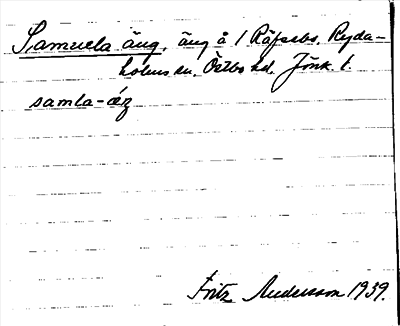 Samuela äng, äng å 1 Räfsebo, Ryda-
holms sn. Östbo hd. Jönk. l.
samla-æŋ
Fritz Andersson 1939.